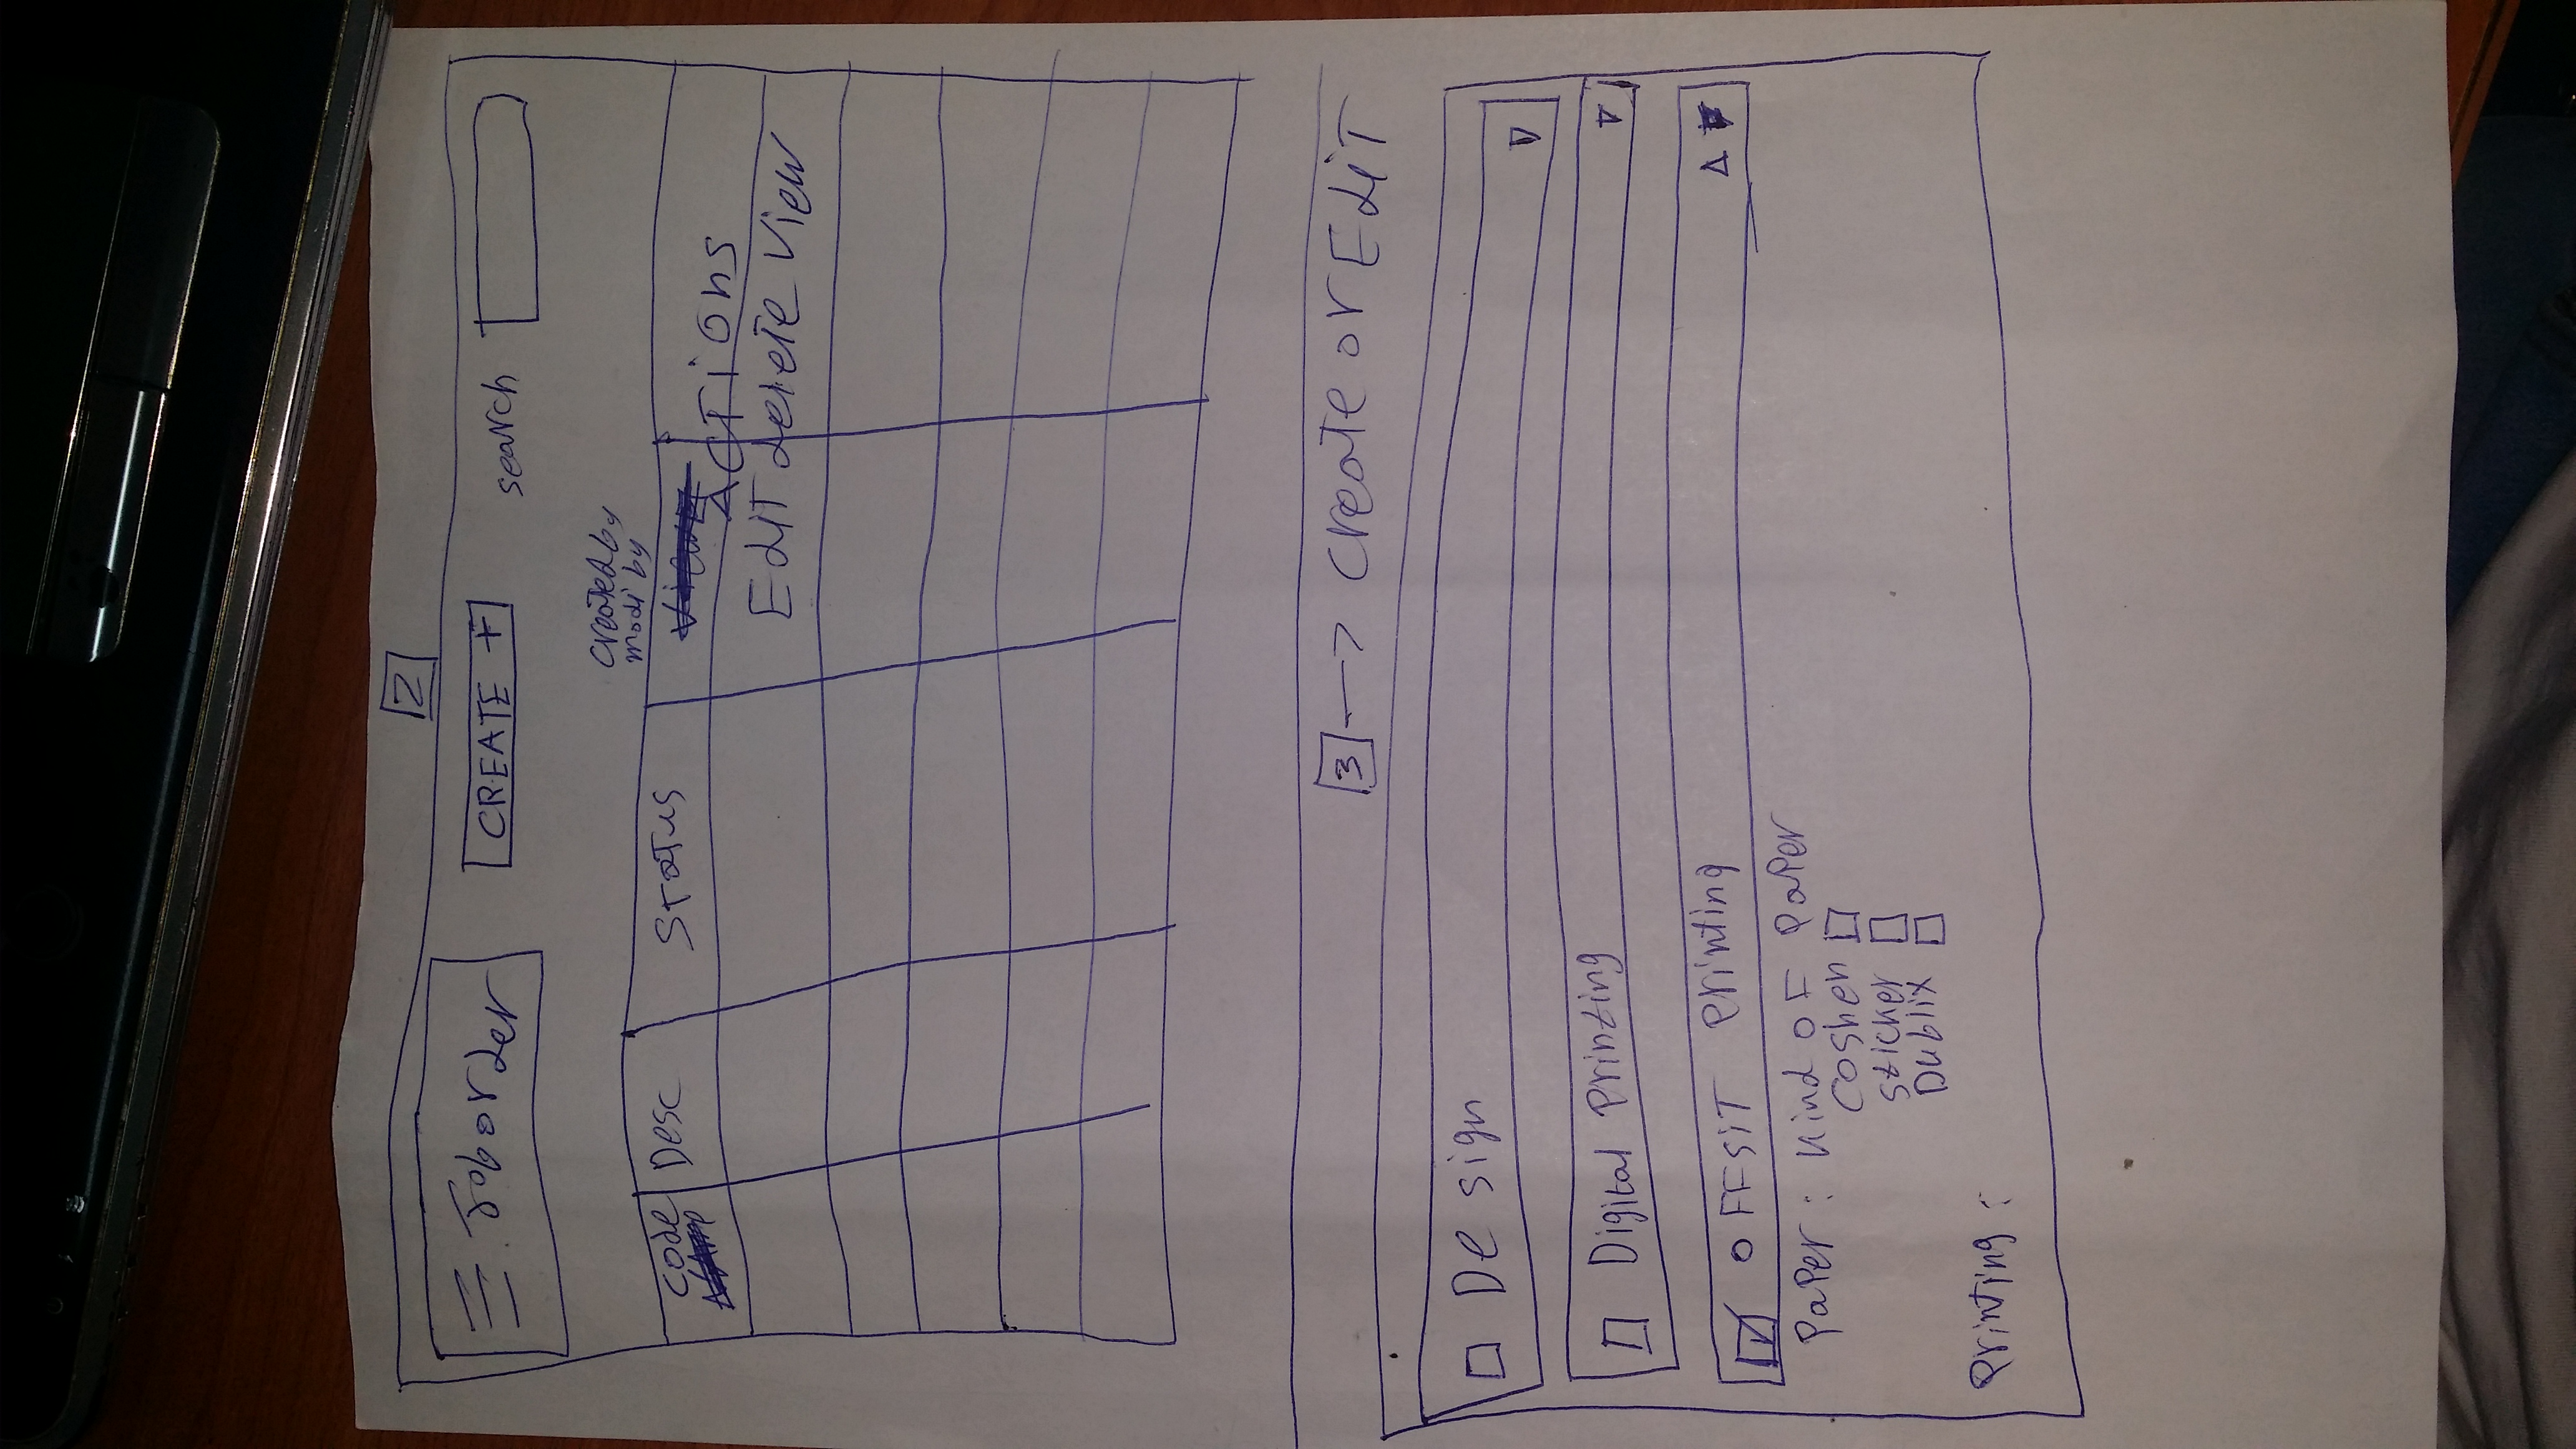 2
Job order
CREATE +
search
created by
modi by
code
Desc
Status
ACTiOns
EdiT delete View
3 -> create or EdiT
Design
Digital Printing
OFFSiT Printing
PaPer : Kind OF PaPer
Coshen
sticker
Dublix
Printing :